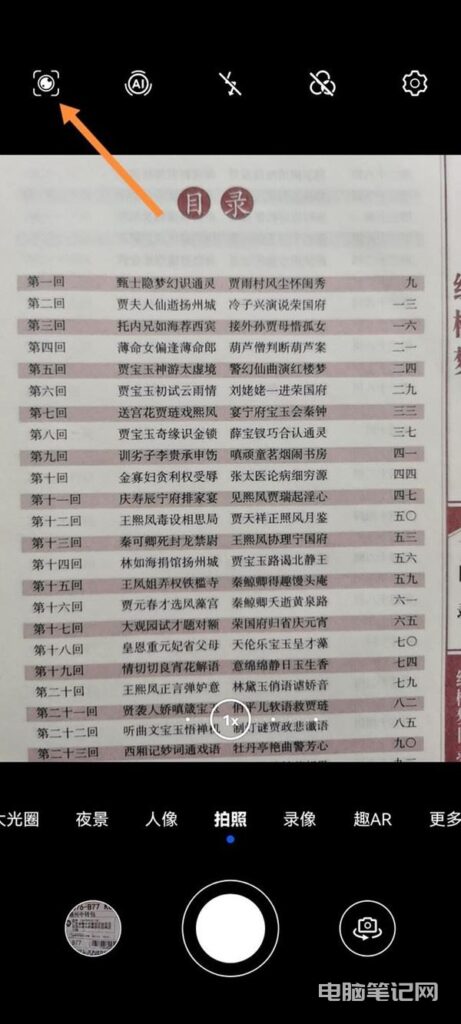 AI
目录
第一回 甄士隐梦幻识通灵 贾雨村风尘怀闺秀 九
第二回 贾夫人仙逝扬州城 冷子兴演说荣国府 一三
第三回 托内兄如海荐西宾 接外孙贾母惜孤女 一六
第四回 薄命女偏逢薄命郎 葫芦僧判断葫芦案 二一
第五回 贾宝玉神游太虚境 警幻仙曲演红楼梦 二四
第六回 贾宝玉初试云雨情 刘姥姥一进荣国府 二九
第七回 送宫花贾琏戏熙凤 宴宁府宝玉会秦钟 三三
第八回 贾宝玉奇缘识金锁 薛宝钗巧合认通灵 三七
第九回 训劣子李贵承申饬 嗔顽童茗烟闹书房 四一
第十回 金寡妇贪利权受辱 张太医论病细穷源 四四
第十一回 庆寿辰宁府排家宴 见熙凤贾瑞起淫心 四七
第十二回 王熙凤毒设相思局 贾天祥正照风月鉴 五〇
第十三回 秦可卿死封龙禁尉 王熙凤协理宁国府 五三
第十四回 林如海捐馆扬州城 贾宝玉路谒北静王 五六
第十五回 王凤姐弄权铁槛寺 秦鲸卿得趣馒头庵 五九
第十六回 贾元春才选凤藻宫 秦鲸卿夭逝黄泉路 六一
第十七回 大观园试才题对额 荣国府归省庆元宵 六五
第十八回 皇恩重元妃省父母 天伦乐宝玉呈才藻 七〇
第十九回 情切切良宵花解语 意绵绵静日玉生香 七四
第二十回 王熙凤正言弹妒意 林黛玉俏语谑娇音 七九
第二十一回 贤袭人娇嗔箴宝玉 俏平儿软语救贾琏 八二
第二十二回 听曲文宝玉悟禅机 制灯谜贾政悲谶语 八五
第二十三回 西厢记妙词通戏语 牡丹亭艳曲警芳心 九〇
1x
大光圈 夜景 人像 拍照 录像 趣AR 更多
电脑笔记网